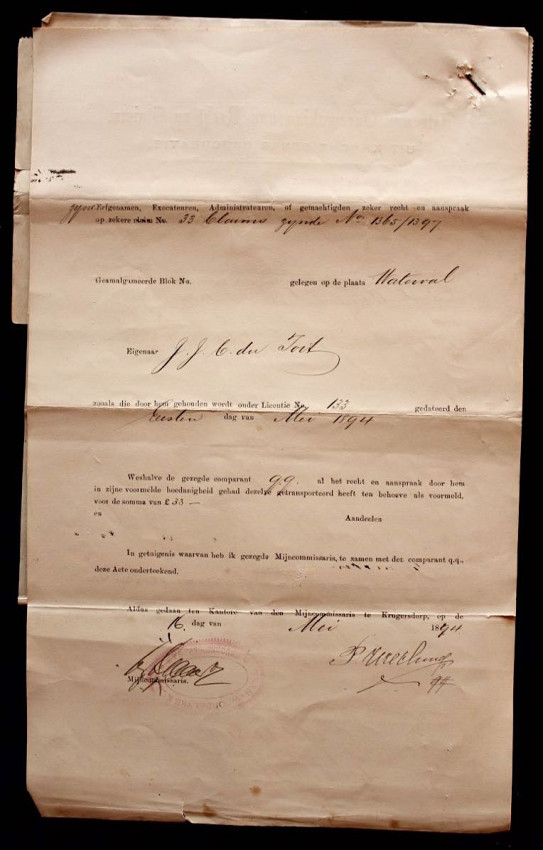 zijne Erfgenamen, Executeuren, Administrateuren, of gemachtigden zeker recht en aanspraak
op zekere claim No. 33 Claims zynde No 1365/1397
Geamalgameerde Blok No. gelegen op de plaats Waterval
Eigenaar J. J. C. du Toit
zooals die door hem gehouden wordt onder Licentie No. 133 gedateerd den
Eersten dag van Mei 1894
Weshalve de gezegde comparant q.q. al het recht en aanspraak door hem
in zijne voormelde hoedanigheid gehad dezelve getransporteerd heeft ten behoeve als voormeld,
voor de somma van £ 33 —
en Aandeelen
In getuigenis waarvan heb ik gezegde Mijncommissaris, te zamen met den comparant q.q.,
deze Acte onderteekend.
Aldus gedaan ten Kantore van den Mijncommissaris te Krugersdorp, op de
16 dag van Mei 1894
Mijncommissaris.
qq